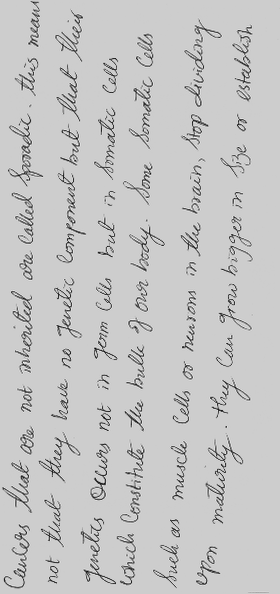 Cancers that are not inherited are called Sporadic. this means
not that they have no genetic component but that their
genetics occurs not in germ cells but in Somatic Cells
which Constitute the bulk of our body. Some Somatic Cells
such as muscle cells or neurons in the brain, stop dividing
upon maturity. they can grow bigger in size or establish